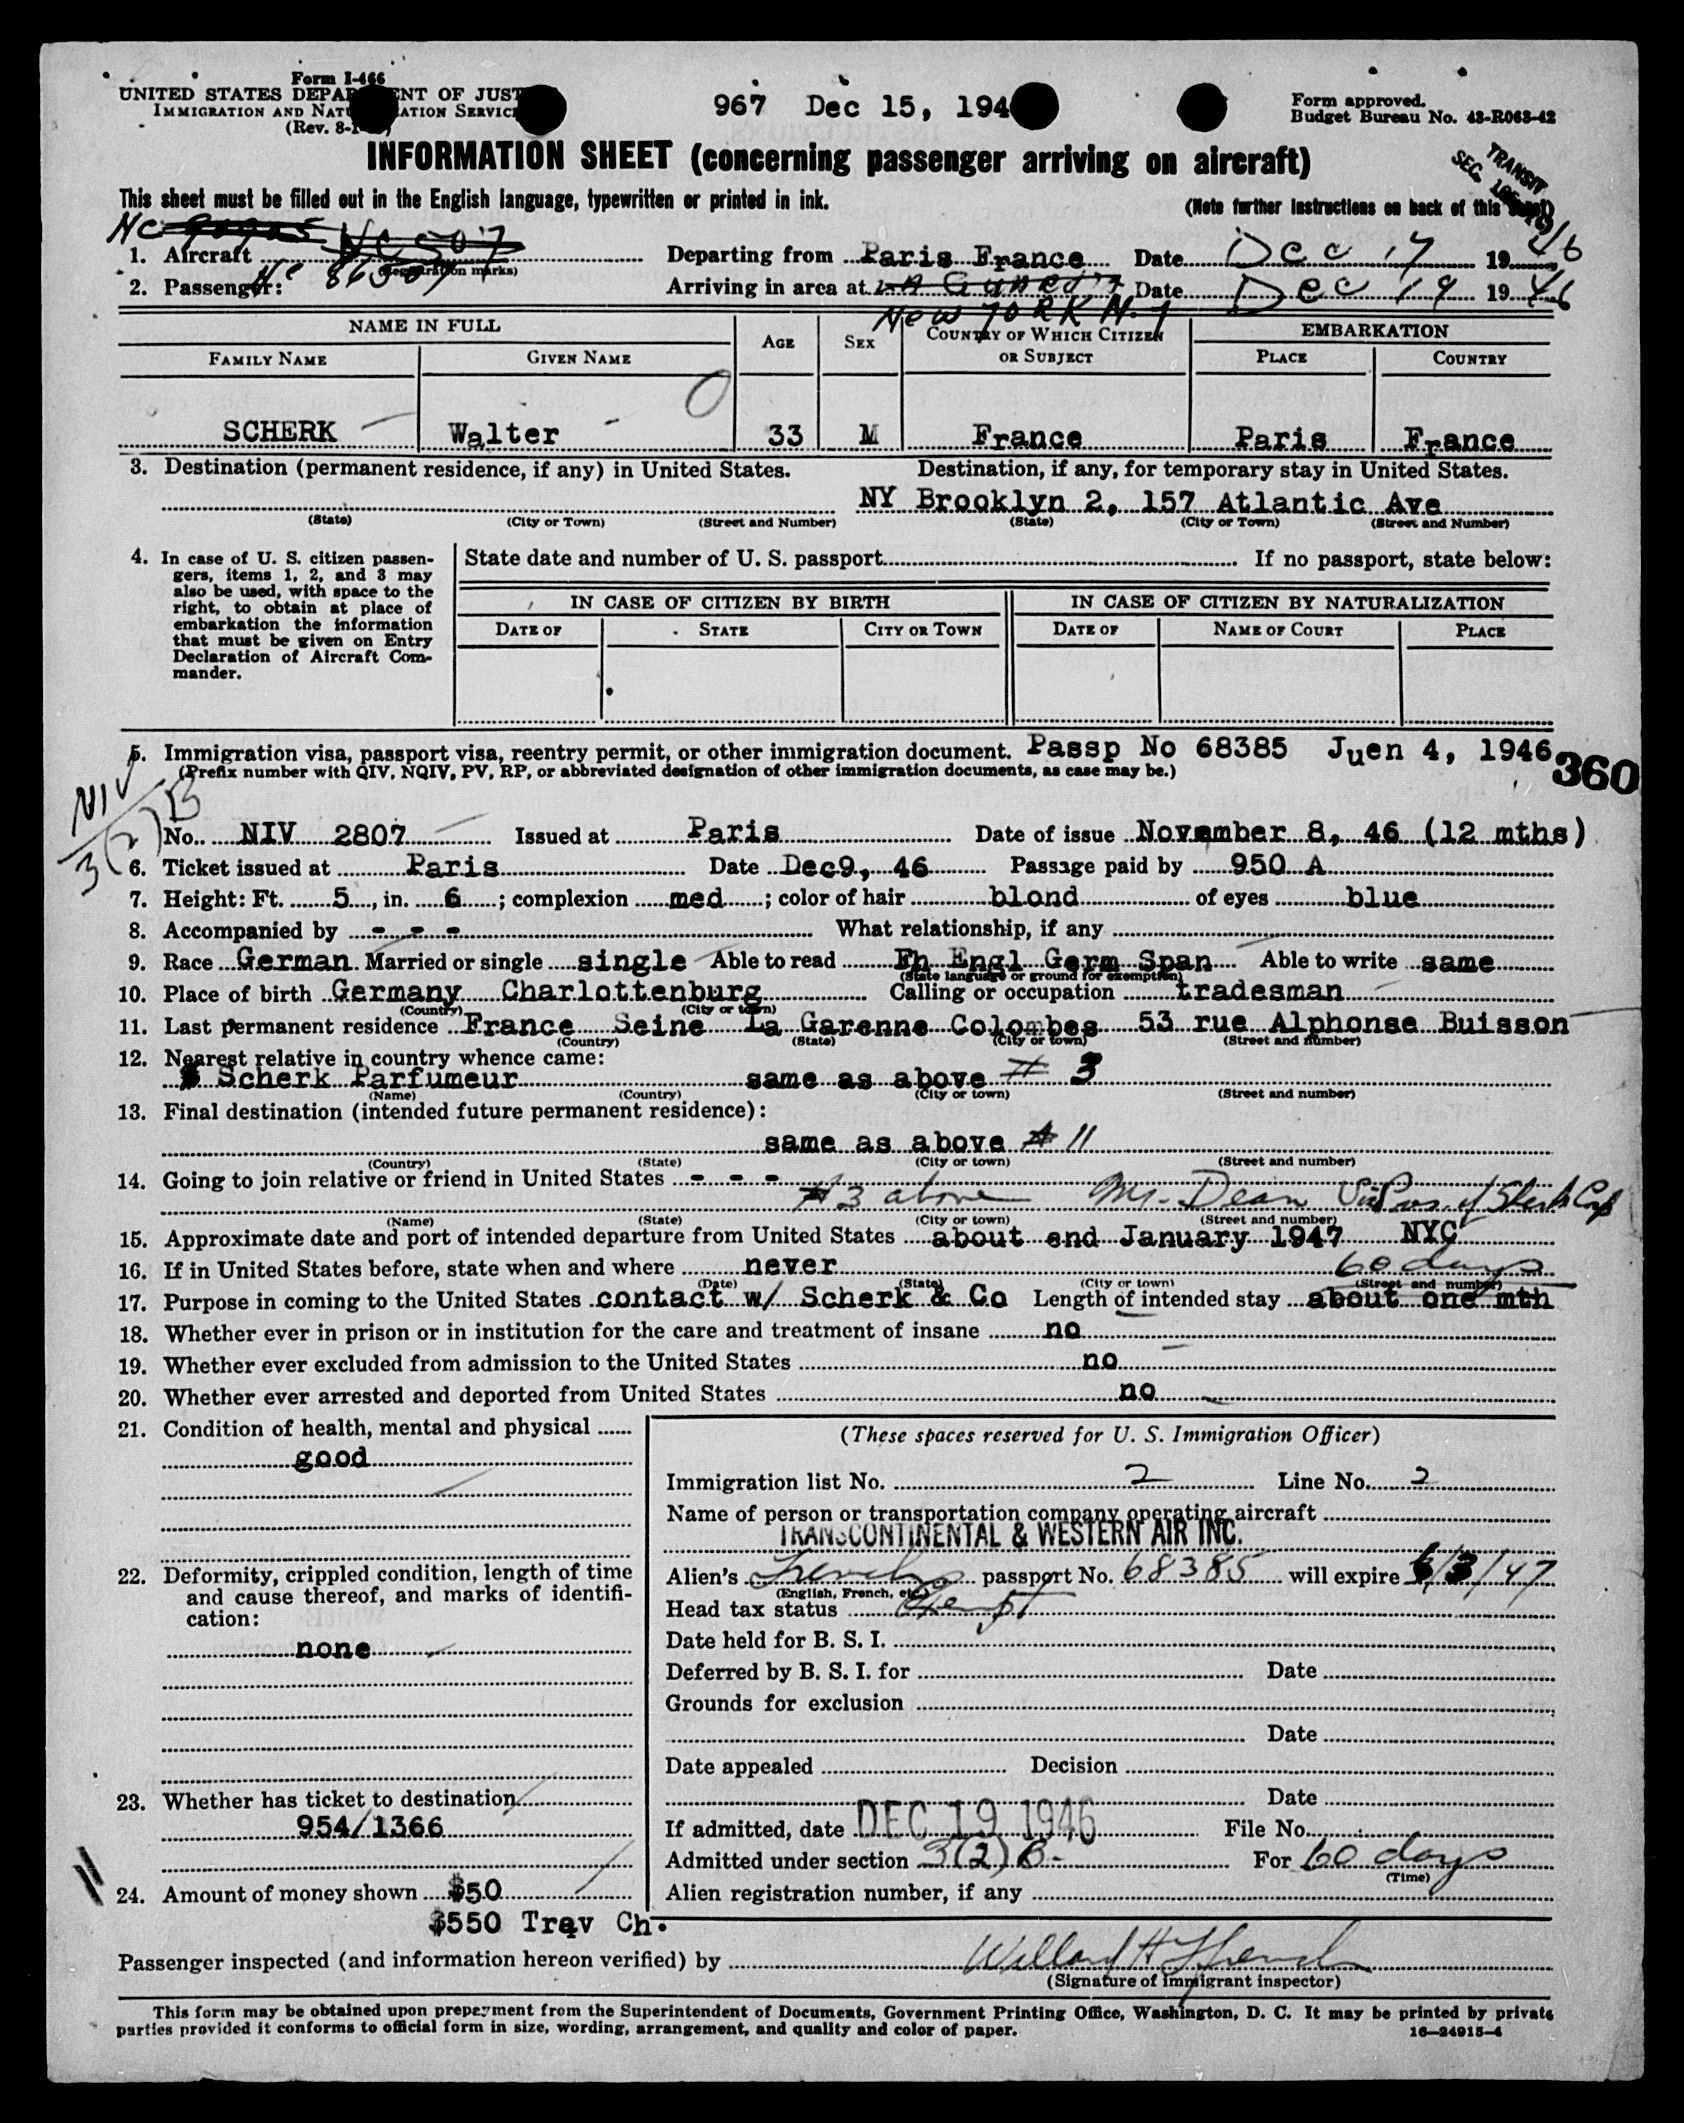 Form I-466
UNITED STATES DEPA NT OF JUST
IMMIGRATION AND NATU ATION SERVIC
(Rev. 8-1
967 Dec 15, 194
Form approved.
Budget Bureau No. 43-R063-42
INFORMATION SHEET (concerning passenger arriving on aircraft)
TRANSIT
SEC.
This sheet must be filled out in the English language, typewritten or printed in ink.
(Note further instructions on back of this sheet)
NC NC 507
1. Aircraft
(Registration marks)
Departing from Paris France Date Dec 17 1946
2. Passenger: NC 86507
Arriving in area at La Guardia Date Dec 19 1946
New York N.Y
NAME IN FULL
AGE
SEX
COUNTRY OF WHICH CITIZEN
OR SUBJECT
EMBARKATION
FAMILY NAME
GIVEN NAME
PLACE
COUNTRY
SCHERK Walter 33 M France Paris France
3. Destination (permanent residence, if any) in United States.
Destination, if any, for temporary stay in United States.
NY Brooklyn 2, 157 Atlantic Ave
(State) (City or Town) (Street and Number) (State) (City or Town) (Street and Number)
4. In case of U. S. citizen passen-
gers, items 1, 2, and 3 may
also be used, with space to the
right, to obtain at place of
embarkation the information
that must be given on Entry
Declaration of Aircraft Com-
mander.
State date and number of U. S. passport If no passport, state below:
IN CASE OF CITIZEN BY BIRTH
IN CASE OF CITIZEN BY NATURALIZATION
DATE OF STATE CITY OR TOWN DATE OF NAME OF COURT PLACE
5. Immigration visa, passport visa, reentry permit, or other immigration document. Passp No 68385 Juen 4, 1946
(Prefix number with QIV, NQIV, PV, RP, or abbreviated designation of other immigration documents, as case may be.)
360
NIV
3(2)B
No. NIV 2807 Issued at Paris Date of issue November 8, 46 (12 mths)
6. Ticket issued at Paris Date Dec9, 46 Passage paid by 950 A
7. Height: Ft. 5, in. 6; complexion med; color of hair blond of eyes blue
8. Accompanied by - - - What relationship, if any
9. Race German Married or single single Able to read Fh Engl Germ Span Able to write same
(State language or ground for exemption)
10. Place of birth Germany Charlottenburg Calling or occupation tradesman
(Country) (City or town)
11. Last permanent residence France Seine La Garenne Colombes 53 rue Alphonse Buisson
(Country) (State) (City or town) (Street and number)
12. Nearest relative in country whence came:
Scherk Parfumeur same as above # 3
(Name) (Country) (City or town) (Street and number)
13. Final destination (intended future permanent residence):
same as above # 11
(Country) (State) (City or town) (Street and number)
14. Going to join relative or friend in United States - - -
#3 above Mr. Dean Vice Pres. of Sherk Corp
(Name) (State) (City or town) (Street and number)
15. Approximate date and port of intended departure from United States about end January 1947 NYC
16. If in United States before, state when and where never
60 days
(Date) (State) (City or town) (Street and number)
17. Purpose in coming to the United States contact w/ Scherk & Co Length of intended stay about one mth
18. Whether ever in prison or in institution for the care and treatment of insane no
19. Whether ever excluded from admission to the United States no
20. Whether ever arrested and deported from United States no
21. Condition of health, mental and physical
good
22. Deformity, crippled condition, length of time
and cause thereof, and marks of identifi-
cation:
none
23. Whether has ticket to destination
954/1366
24. Amount of money shown $50
$550 Trqv Ch.
(These spaces reserved for U. S. Immigration Officer)
Immigration list No. 2 Line No. 2
Name of person or transportation company operating aircraft
TRANSCONTINENTAL & WESTERN AIR INC.
Alien's French passport No. 68385 will expire 6/3/47
(English, French, etc.)
Head tax status Exempt
Date held for B. S. I.
Deferred by B. S. I. for Date
Grounds for exclusion
Date
Date appealed Decision
Date
If admitted, date DEC 19 1946 File No.
Admitted under section 3(2) B- For 60 days
(Time)
Alien registration number, if any
Passenger inspected (and information hereon verified) by Willard H French
(Signature of immigrant inspector)
This form may be obtained upon prepayment from the Superintendent of Documents, Government Printing Office, Washington, D. C. It may be printed by private
parties provided it conforms to official form in size, wording, arrangement, and quality and color of paper.
16—24915-4